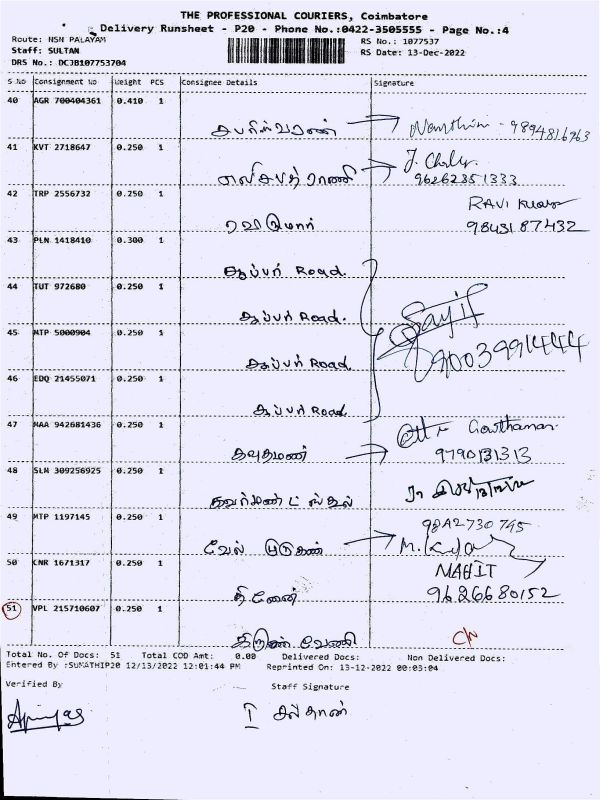 THE PROFESSIONAL COURIERS, Coimbatore
Delivery Runsheet - P20 - Phone No.:0422-3505555 - Page No.:4
Route: NSN PALAYAM
Staff: SULTAN
DRS No.: DCJB107753704
RS No.: 1077537
RS Date: 13-Dec-2022
S No Consignment No Weight PCS Consignee Details Signature
40 AGR 700404361 0.410 1
9894816963
41 KVT 2718647 0.250 1
எலிசபத் ராணி
96262351333
42 TRP 2556732 0.250 1
RAVI Kumar
9843187432
43 PLN 1418410 0.300 1
ஆப்பர் Road.
44 TUT 972680 0.250 1
ஆப்பர் Road.
45 MTP 5000904 0.250 1
ஆப்பர் Road.
9003991444
46 EDQ 21455071 0.250 1
ஆப்பர் Road.
47 MAA 942681436 0.250 1
Gowthaman
கவுதமண்
9790131313
48 SLM 309256925 0.250 1
49 MTP 1197145 0.250 1
9842730745
வேல் முருகண்
50 CNR 1671317 0.250 1
MAHIT
தினேஸ்
9626680152
51 VPL 215710607 0.250 1
வேணி
C/N
Total No. Of Docs: 51 Total COD Amt: 0.00 Delivered Docs: Non Delivered Docs:
Entered By :SUMATHIP20 12/13/2022 12:01:44 PM Reprinted On: 13-12-2022 00:03:04
Verified By Staff Signature
சுல்தாண்